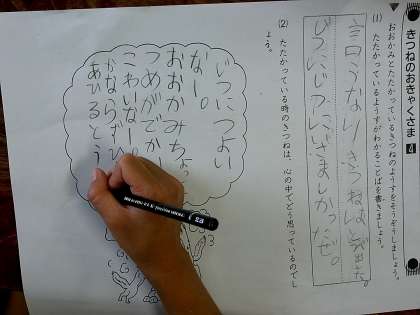 きつねのおきゃくさま 4
おおかみとたたかっているきつねのようすをそうぞうしましょう。
(1) たたかっているようすがわかることばを書きましょう。
言うなり きつねは
じつにじつに、いさましかったぜ。
(2) たたかっている時のきつねは、心の中でどう思っているのでし
ょう。
じつにつよい
なー。
おおかみちょっ
つめがでかい
こわいなー。
かならずひ
あひるとう